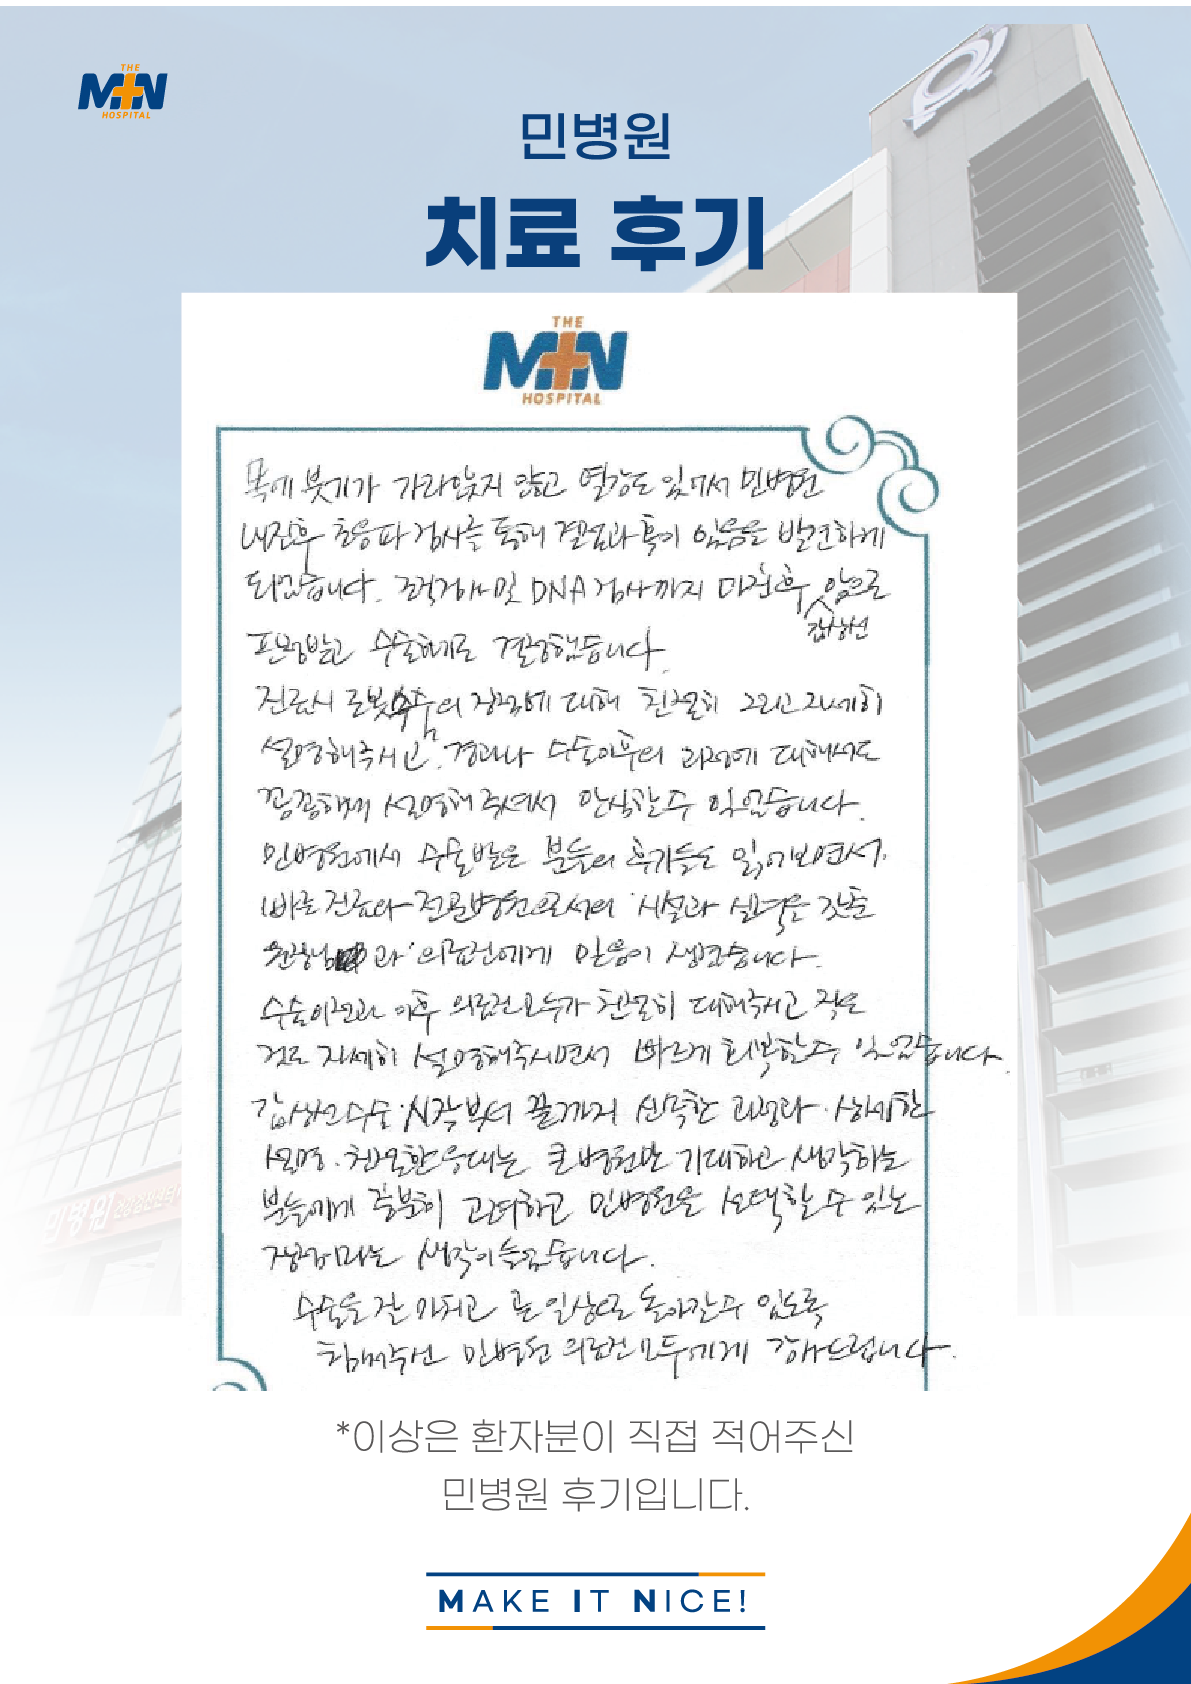 THE
MIN
HOSPITAL
민병원
치료 후기
THE
MIN
HOSPITAL
목에 붓기가 가라앉지 않고 열감도 있어서 민병원
내진후 초음파 검사를 통해 결절과 혹이 있음을 발견하게
되었습니다. 조직검사 및 DNA 검사까지 마친후 갑상선 암으로
판정받고 수술하기로 결정했습니다.
진료시 로봇수술의 장점에 대해 친절히 그리고 자세히
설명해주시고, 경과나 수술이후의 과정에 대해서도
꼼꼼하게 설명해주셔서 안심할수 있었습니다.
민병원에서 수술받은 분들의 후기들도 읽어보면서,
빠른진료와 전문병원으로서의 시설과 실력을 갖춘
원장님과 의료진에게 믿음이 생겼습니다.
수술이전과 이후 의료진모두가 친절히 대해주시고 작은
것도 자세히 설명해주시면서 빠르게 회복할수 있었습니다.
갑상선수술 시작부터 끝까지 신속한 과정과 상세한
설명, 친절한응대는 큰병원만 기대하고 생각하는
분들에게 충분히 고려하고 민병원을 선택할수 있는
생각이들었습니다.
수술을 잘 마치고 곧 일상으로 돌아갈수 있도록
힘써주신 민병원 의료진 모두에게 감사드립니다.
민병원
*이상은 환자분이 직접 적어주신
민병원 후기입니다.
MAKE IT NICE!